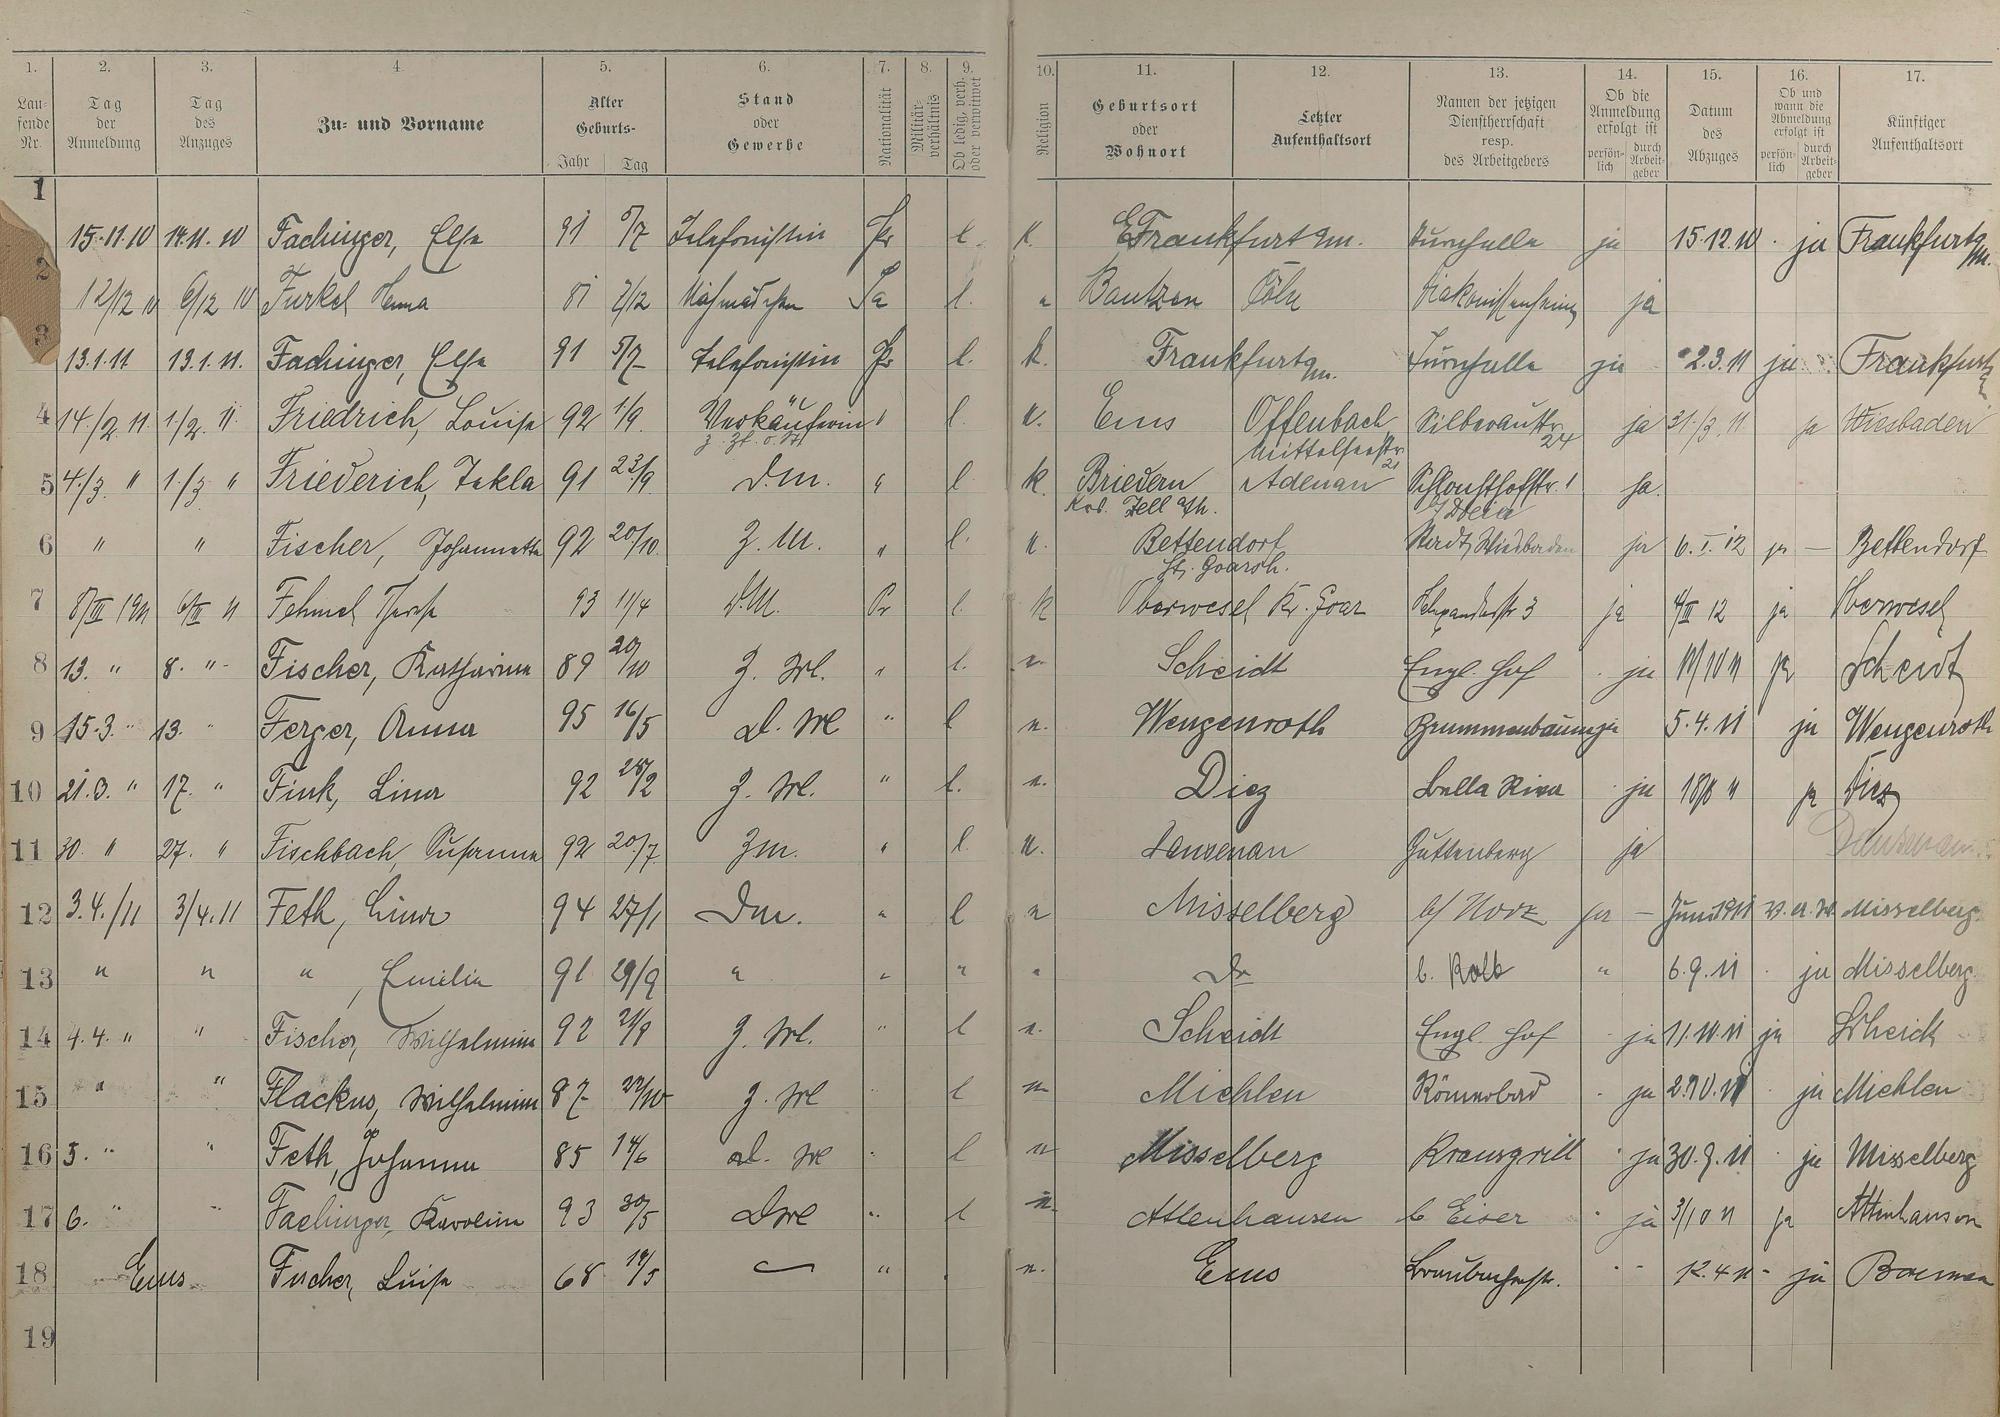 1. 2. 3. 4. 5. 6. 7. 8. 9. 10. 11. 12. 13. 14. 15. 16. 17.
Lau-
fende
Nr.
Tag
der
Anmeldung
Tag
des
Anzuges
Zu- und Vorname
Alter
Geburts-
Jahr Tag
Stand
oder
Gewerbe
Nationalität
Militär-
verhältnis
Ob ledig, verh.
oder verwitwet
Religion
Geburtsort
oder
Wohnort
Letzter
Aufenthaltsort
Namen der jetzigen
Dienstherrschaft
resp.
des Arbeitgebers
Ob die
Anmeldung
erfolgt ist
persön-
lich
durch
Arbeit-
geber
Datum
des
Abzuges
Ob und
wann die
Abmeldung
erfolgt ist
persön-
lich
durch
Arbeit-
geber
Künftiger
Aufenthaltsort
1 15.11.10 14.11.10 Fachinger, Else 91 5/7 Telefonistin Pr l. k. Frankfurt a/m. Turnhalle ja 15.12.10 ja Frankfurt a/m.
2 12/12 10 6/12 10 81 2/12 Sa l. " Bautzen Cöln ja
3 13.1.11 13.1.11. Fachinger, Else 91 5/7 Telefonistin Pr l. k. Frankfurt a/m. Turnhalle ja 2.3.11 ja Frankfurt
4 14./2.11 1./2. 11 Friedrich, Louise 92 1./9. Verkäuferin " l. Ems Offenbach Silberaustr. ja 31./3.11 ja Wiesbaden
24
21
5 4./3. " 1./3 " Friederich, Tekla 91 23./9. D.M. " l k. Briedern Adenau ja.
Zell
6 " " Fischer, Johannette 92 20./10. Z.M. " l. Bettendorf Stadt Wiesbaden ja 6.I.12 ja — Bettendorf
St. Goarsh.
7 8/III 1911 6/III 11 93 11/4 D.M. Pr l. k Oberwesel Kr. Goar ja 4/III 12 ja Oberwesel
8 13. " 8. " Fischer, Katharina 89 20/10 Z. Ml. " l. Scheidt Engl. Hof ja 11/10 11 ja Scheidt
9 15.3. " 13. " Ferger, Anna 95 16/5 D. Ml " l Wengenroth ja 5.4.11 ja Wengenroth
10 21.3. " 17. " Fink, Lina 92 28/2 Z. Ml. " l. Diez Bella Riva ja ja Diez
11 30. " 27. " Fischbach, Susanna 92 20./7. Zm. " l. Guttenberg ja
12 3.4./11 3/4.11 Feth, Lina 94 27/1 Dm. " l Misselberg ja — Juni 1911 Misselberg
13 " " " , Emilie 91 29/9 " " " " Do b. Kolb " 6.9.11 ja Misselberg
14 4.4. " " Fischer, Wilhelmine 92 Z. Ml. " l Scheidt Engl. Hof ja 11.10.11 ja Scheidt
15 " " Flackus, Wilhelmine 87 Z. Ml l Miehlen Römerbad ja 2.10.11 ja Miehlen
16 5. " " Feth, Johanna 85 14/6 D. Ml " l Misselberg ja 30.9.11 ja Misselberg
17 6. " " Fachinger, Karoline 93 30/5 D Ml " l Attenhausen b Eiser ja 3/10 11 ja Attenhausen
18 Ems Luise 68 — " Ems Braubacherstr. 12.4 11 ja
19